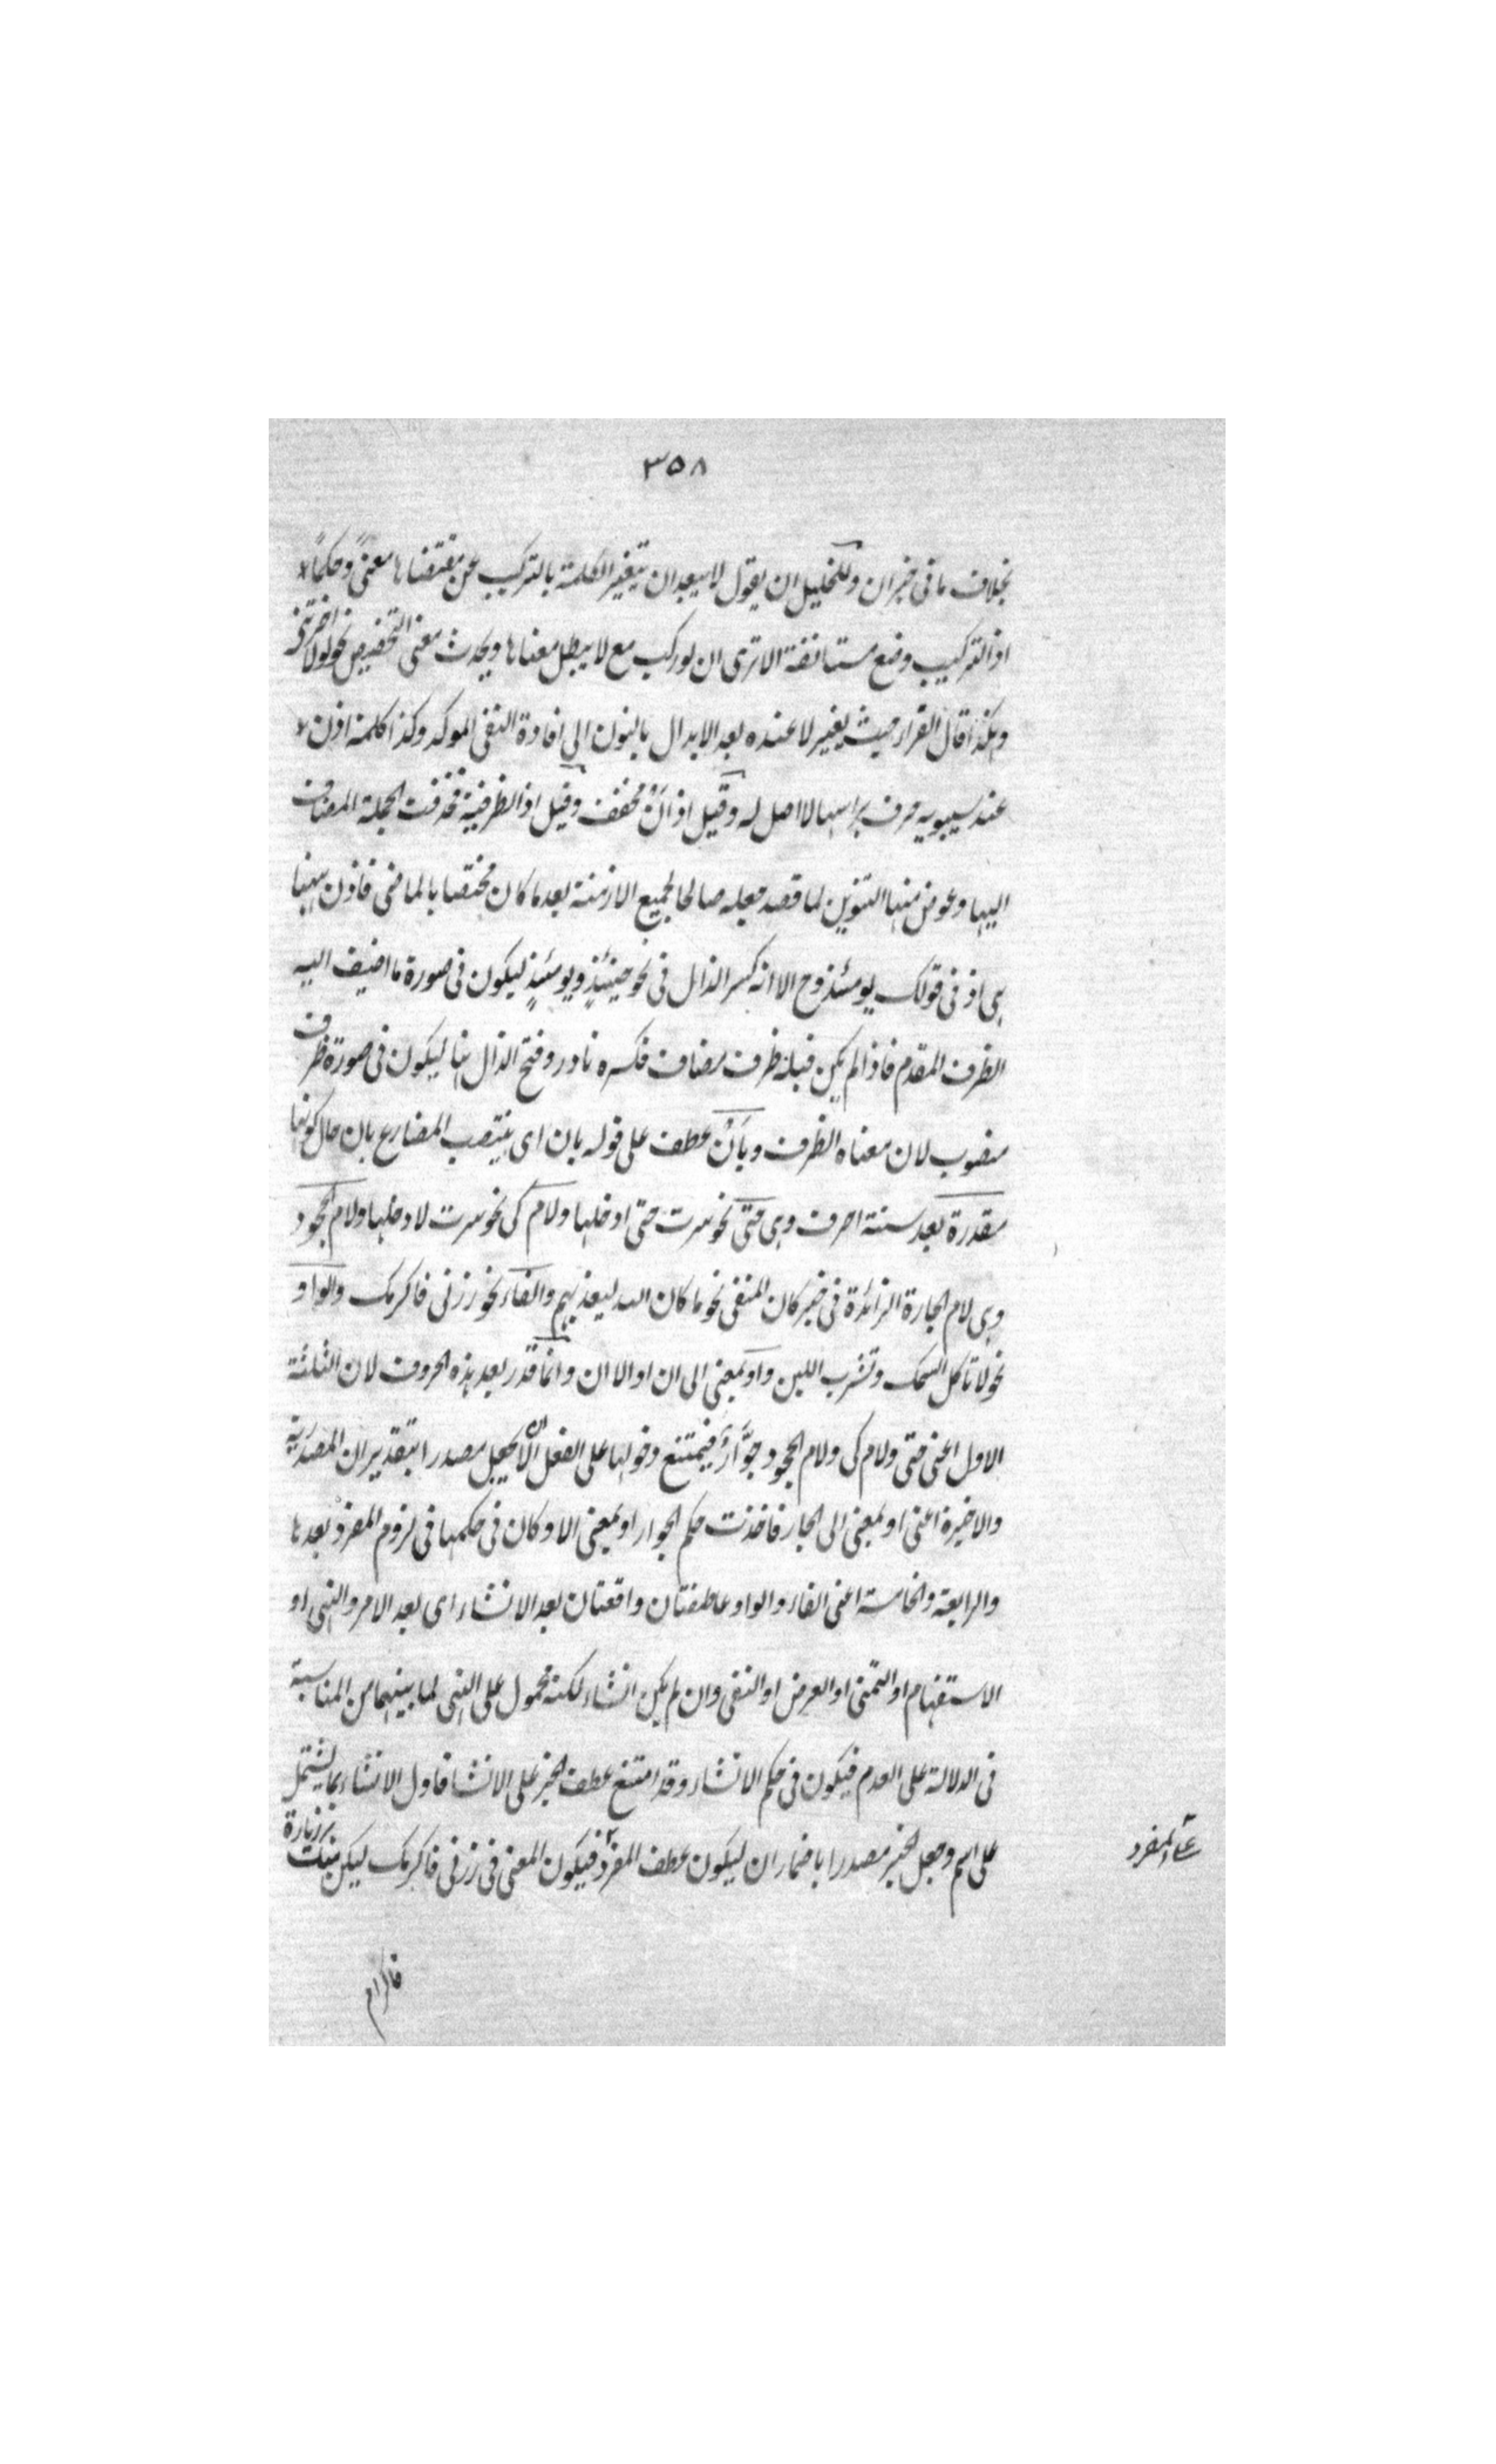 ٣٥٨
بخلاف ما فى خبر ان وللخليل ان يقول لا يبعد ان يتغير الكلمة بالتركيب عن مقتضاها معنىً وحكماً
اذ التركيب وضع مستانفة الا ترى ان لو ركب مع لا يبطل معناها ويحدث معنى التحضيض نحو لولا اخرتنى
وهكذا قال الفراء حيث يغير لا عنده بعد الابدال بالنون الى افادة النفى الموكد وكذا كلمة اذن
عند سيبويه حرف براسها لا اصل له وقيل اذ اَنْ مخفف وقيل اذ الظرفية فحذفت الجملة المضاف
اليها وعوض منها التنوين لما قصد جعله صالحا لجميع الازمنة بعد ما كان مختصا بالماضى فاذن ههنا
هى اذ فى قولك يومئذ وح الا انه كسر الذال فى نحو حينئذٍ ويومئذٍ ليكون فى صورة ما اضيف اليه
الظرف المقدم فاذا لم يكن قبله ظرف مضاف فكسره نادر وفتح الذال هنا ليكون فى صورة ظرف
منصوب لان معناه الظرف وبِاَنْ عطف على قوله بان اى ينتصب المضارع بان حال كونها
مقدرة بعد ستة احرف وهى حتى نحو سرت حتى ادخلها ولام كى نحو سرت لادخلها ولام الجحود
وهى لام الجارة الزائدة فى خبر كان المنفى نحو ما كان الله ليعذبهم والفاء نحو زرنى فاكرمك والواو
نحو لا تاكل السمك وتشرب اللبن واو بمعنى الى ان او الا ان وانما قدر بعد هذه الحروف لان الثلثة
الاول اعنى حتى ولام كى ولام الجحود جوّارّ فيمتنع دخولها على الفعل الا ان يجعل مصدرا بتقدير ان المصدرية
والاخيرة اعنى او بمعنى الى الجار فاخذت حكم الجوار او بمعنى الا وكان فى حكمها فى لزوم المفرد بعدها
والرابعة والخامسة اعنى الفاء والواو عاطفتان واقعتان بعد الانشاء اى بعد الامر والنهى او
الاستفهام او التمنى او العرض او النفى وان لم يكن انشاء لكنه محمول على النهى لما بينهما من المناسبة
فى الدلالة على العدم فيكون فى حكم الانشاء وقد امتنع عطف الخبر على الانشا فاول الانشاء بما يشتمل
على اسم وجعل الخبر مصدرا باضمار ان ليكون عطف المفرد فيكون المعنى فى زرنى فاكرمك ليكن منك زيارة
على المفرد
فاكرام